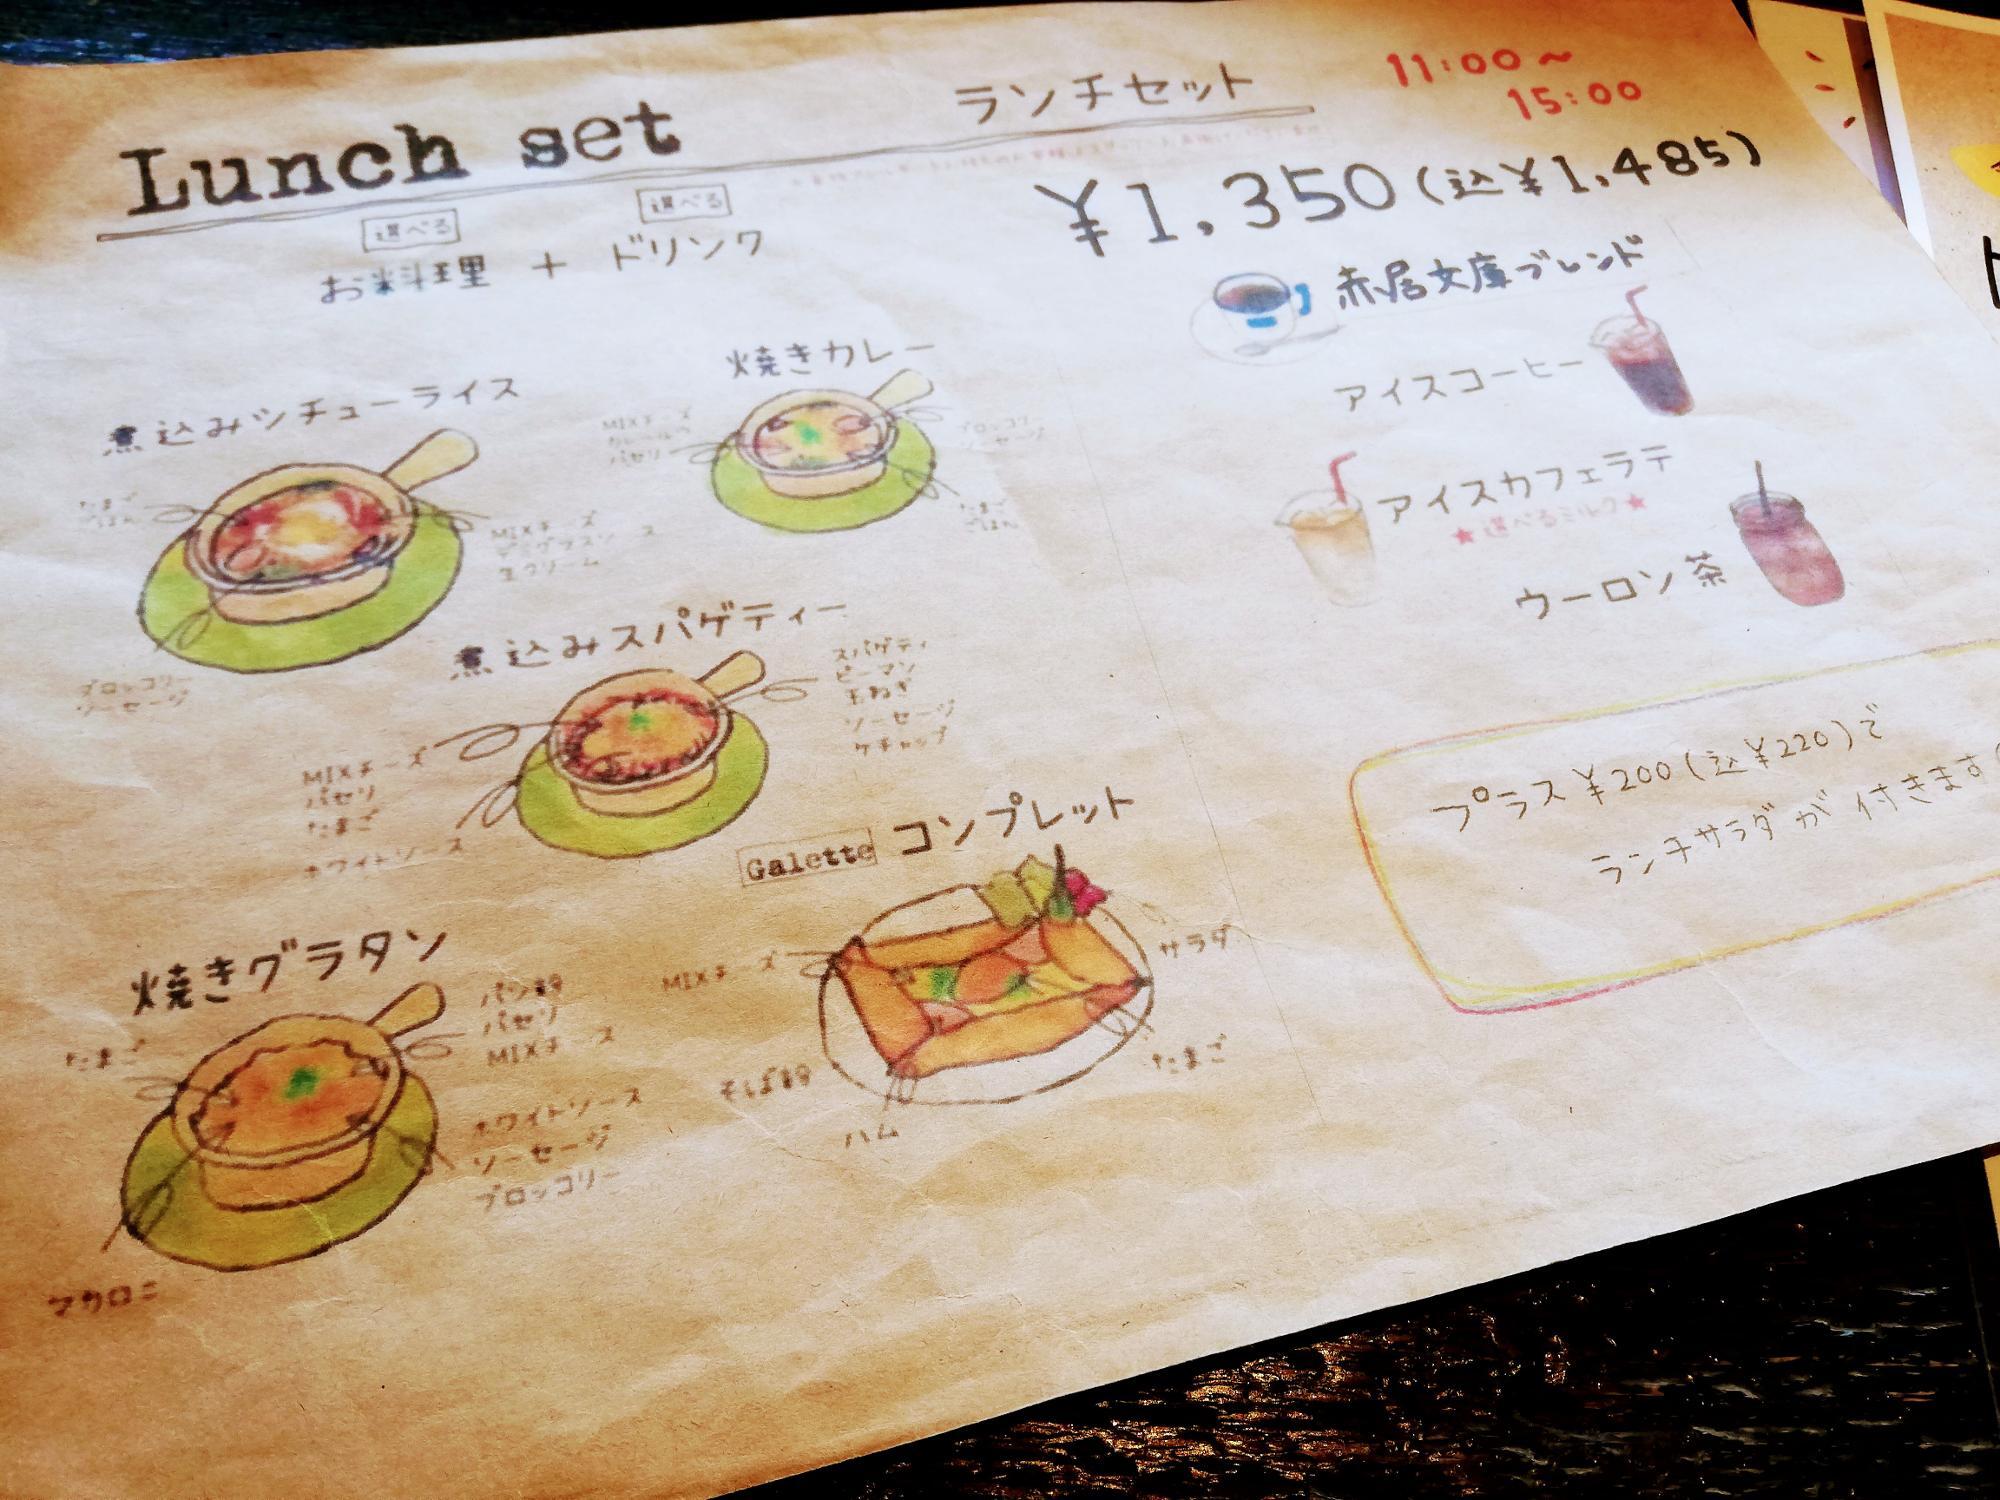 Lunch set
ランチセット
11:00～
15:00
¥1,350(込¥1,485)
選べる
選べる
お料理 + ドリンク
煮込みシチューライス
たまご
ごはん
MIXチーズ
デミグラスソース
生クリーム
ブロッコリー
ソーセージ
焼きカレー
MIXチーズ
パセリ
ブロッコリー
ソーセージ
たまご
ごはん
煮込みスパゲティー
スパゲティ
ピーマン
玉ねぎ
ソーセージ
ケチャップ
MIXチーズ
パセリ
たまご
ホワイトソース
焼きグラタン
たまご
パン粉
パセリ
MIXチーズ
ホワイトソース
ソーセージ
ブロッコリー
マカロニ
Galette コンプレット
MIXチーズ
サラダ
そば粉
たまご
ハム
赤居文庫ブレンド
アイスコーヒー
アイスカフェラテ
★選べるミルク★
ウーロン茶
プラス¥200(込¥220)で
ランチサラダが付きます